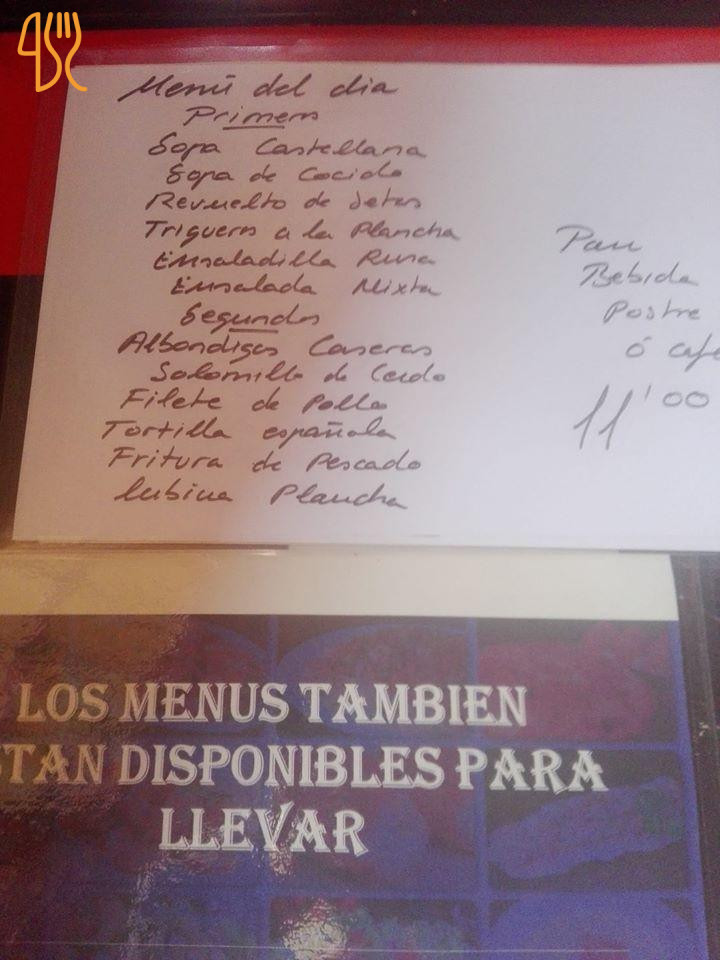 Menú del dia
Primeros
Sopa Castellana
Sopa de Cocido
Revuelto de Setas
Trigueros a la Plancha
Ensaladilla Rusa
Ensalada Mixta
Segundos
Albondigas Caseras
Solomillo de Cerdo
Filete de Pollo
Tortilla española
Fritura de Pescado
lubina Plancha
Pan
Bebida
Postre
ó Café
11'00
LOS MENUS TAMBIEN
STAN DISPONIBLES PARA
LLEVAR